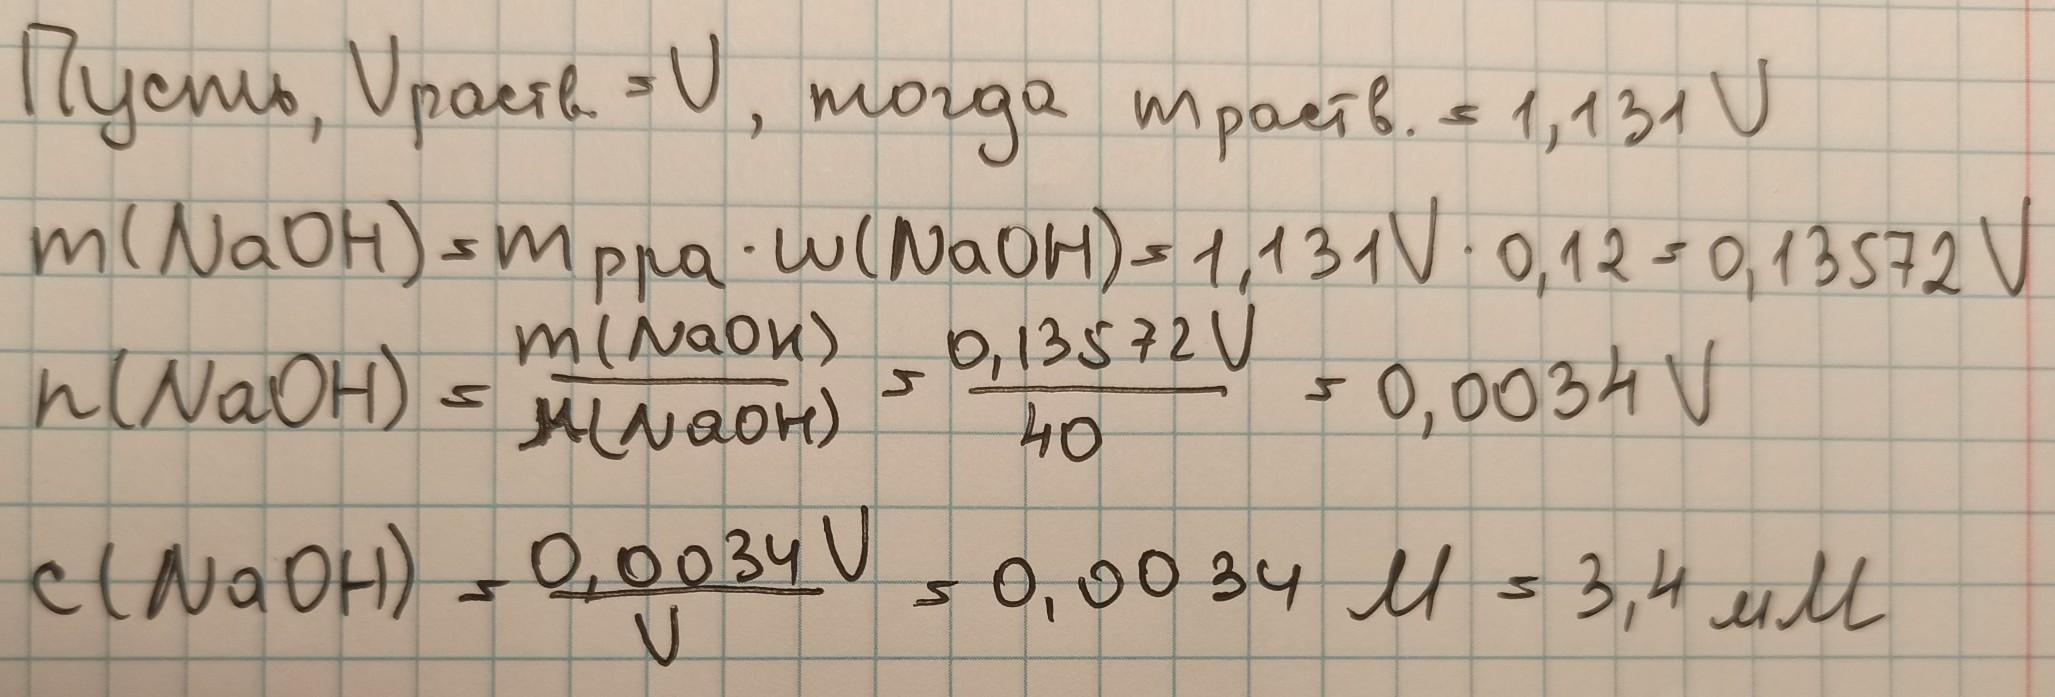 Пусть, Vраств. = V, тогда mраств. = 1,131 V
m(NaOH) = mрра · w(NaOH) = 1,131V · 0,12 = 0,13572 V
n(NaOH) = m(NaOH) / M(NaOH) = 0,13572 V / 40 = 0,0034 V
c(NaOH) = 0,0034 V / V = 0,0034 M = 3,4 мM